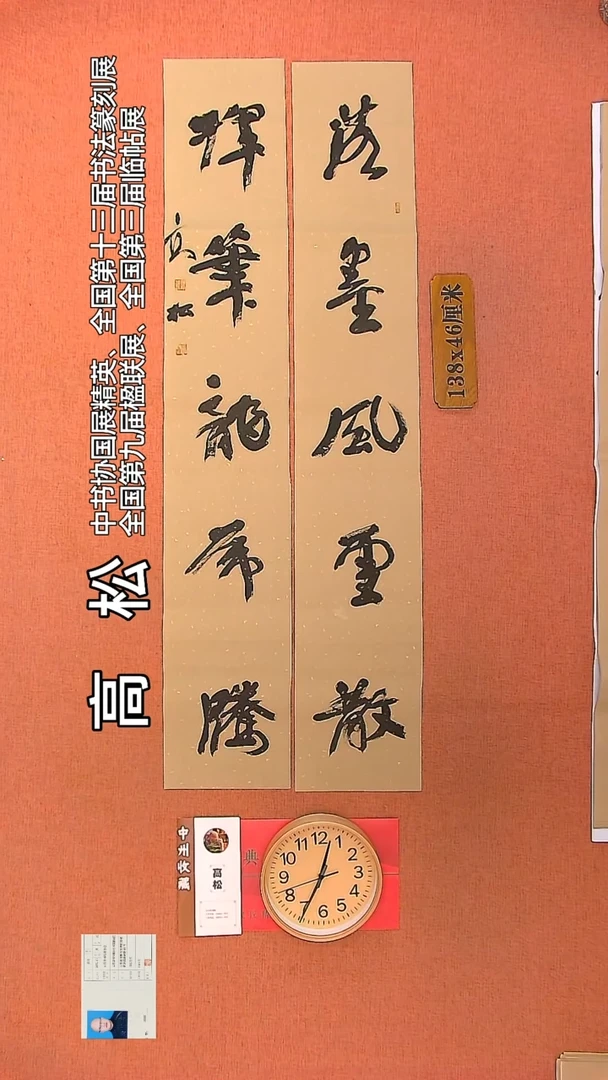 落墨風雲散
揮筆龍虎騰
高松
中书协国展精英、全国第十三届书法篆刻展
全国第九届楹联展、全国第三届临帖展
138x46厘米
高松
典
12 1 2 3 4 5 6 7 8 9 10 11